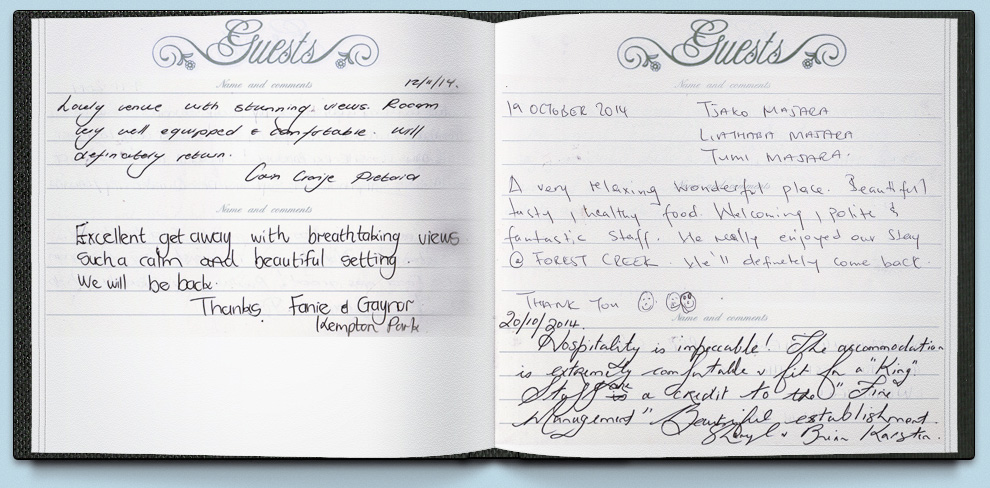 Guests
Name and comments
12/11/14.
Lovely venue with stunning views. Room
very well equipped & comfortable. Will
definatery return.
Cronje Pretoria
Name and comments
Excellent get away with breathtaking views
Such a calm and beautiful setting.
We will be back.
Thanks Fanie & Gaynor
Kempton Park
Guests
Name and comments
19 OCTOBER 2014 TJAKO MAJARA
MAJARA
TUMI MAJARA.
A very relaxing wonderful place. Beautiful
tasty, healthy food. Welcoming, polite &
fantastic staff. We really enjoyed our stay
@ FOREST CREEK. We'll definetely come back.
THANK YOU
Name and comments
20/10/2014.
Hospitality is impeccable! The accommodation
is extremely comfortable & fit for a "King"
Staff are a credit to the "Fine
Management" Beautiful establishment.
Sheryl & Brian Karsten.